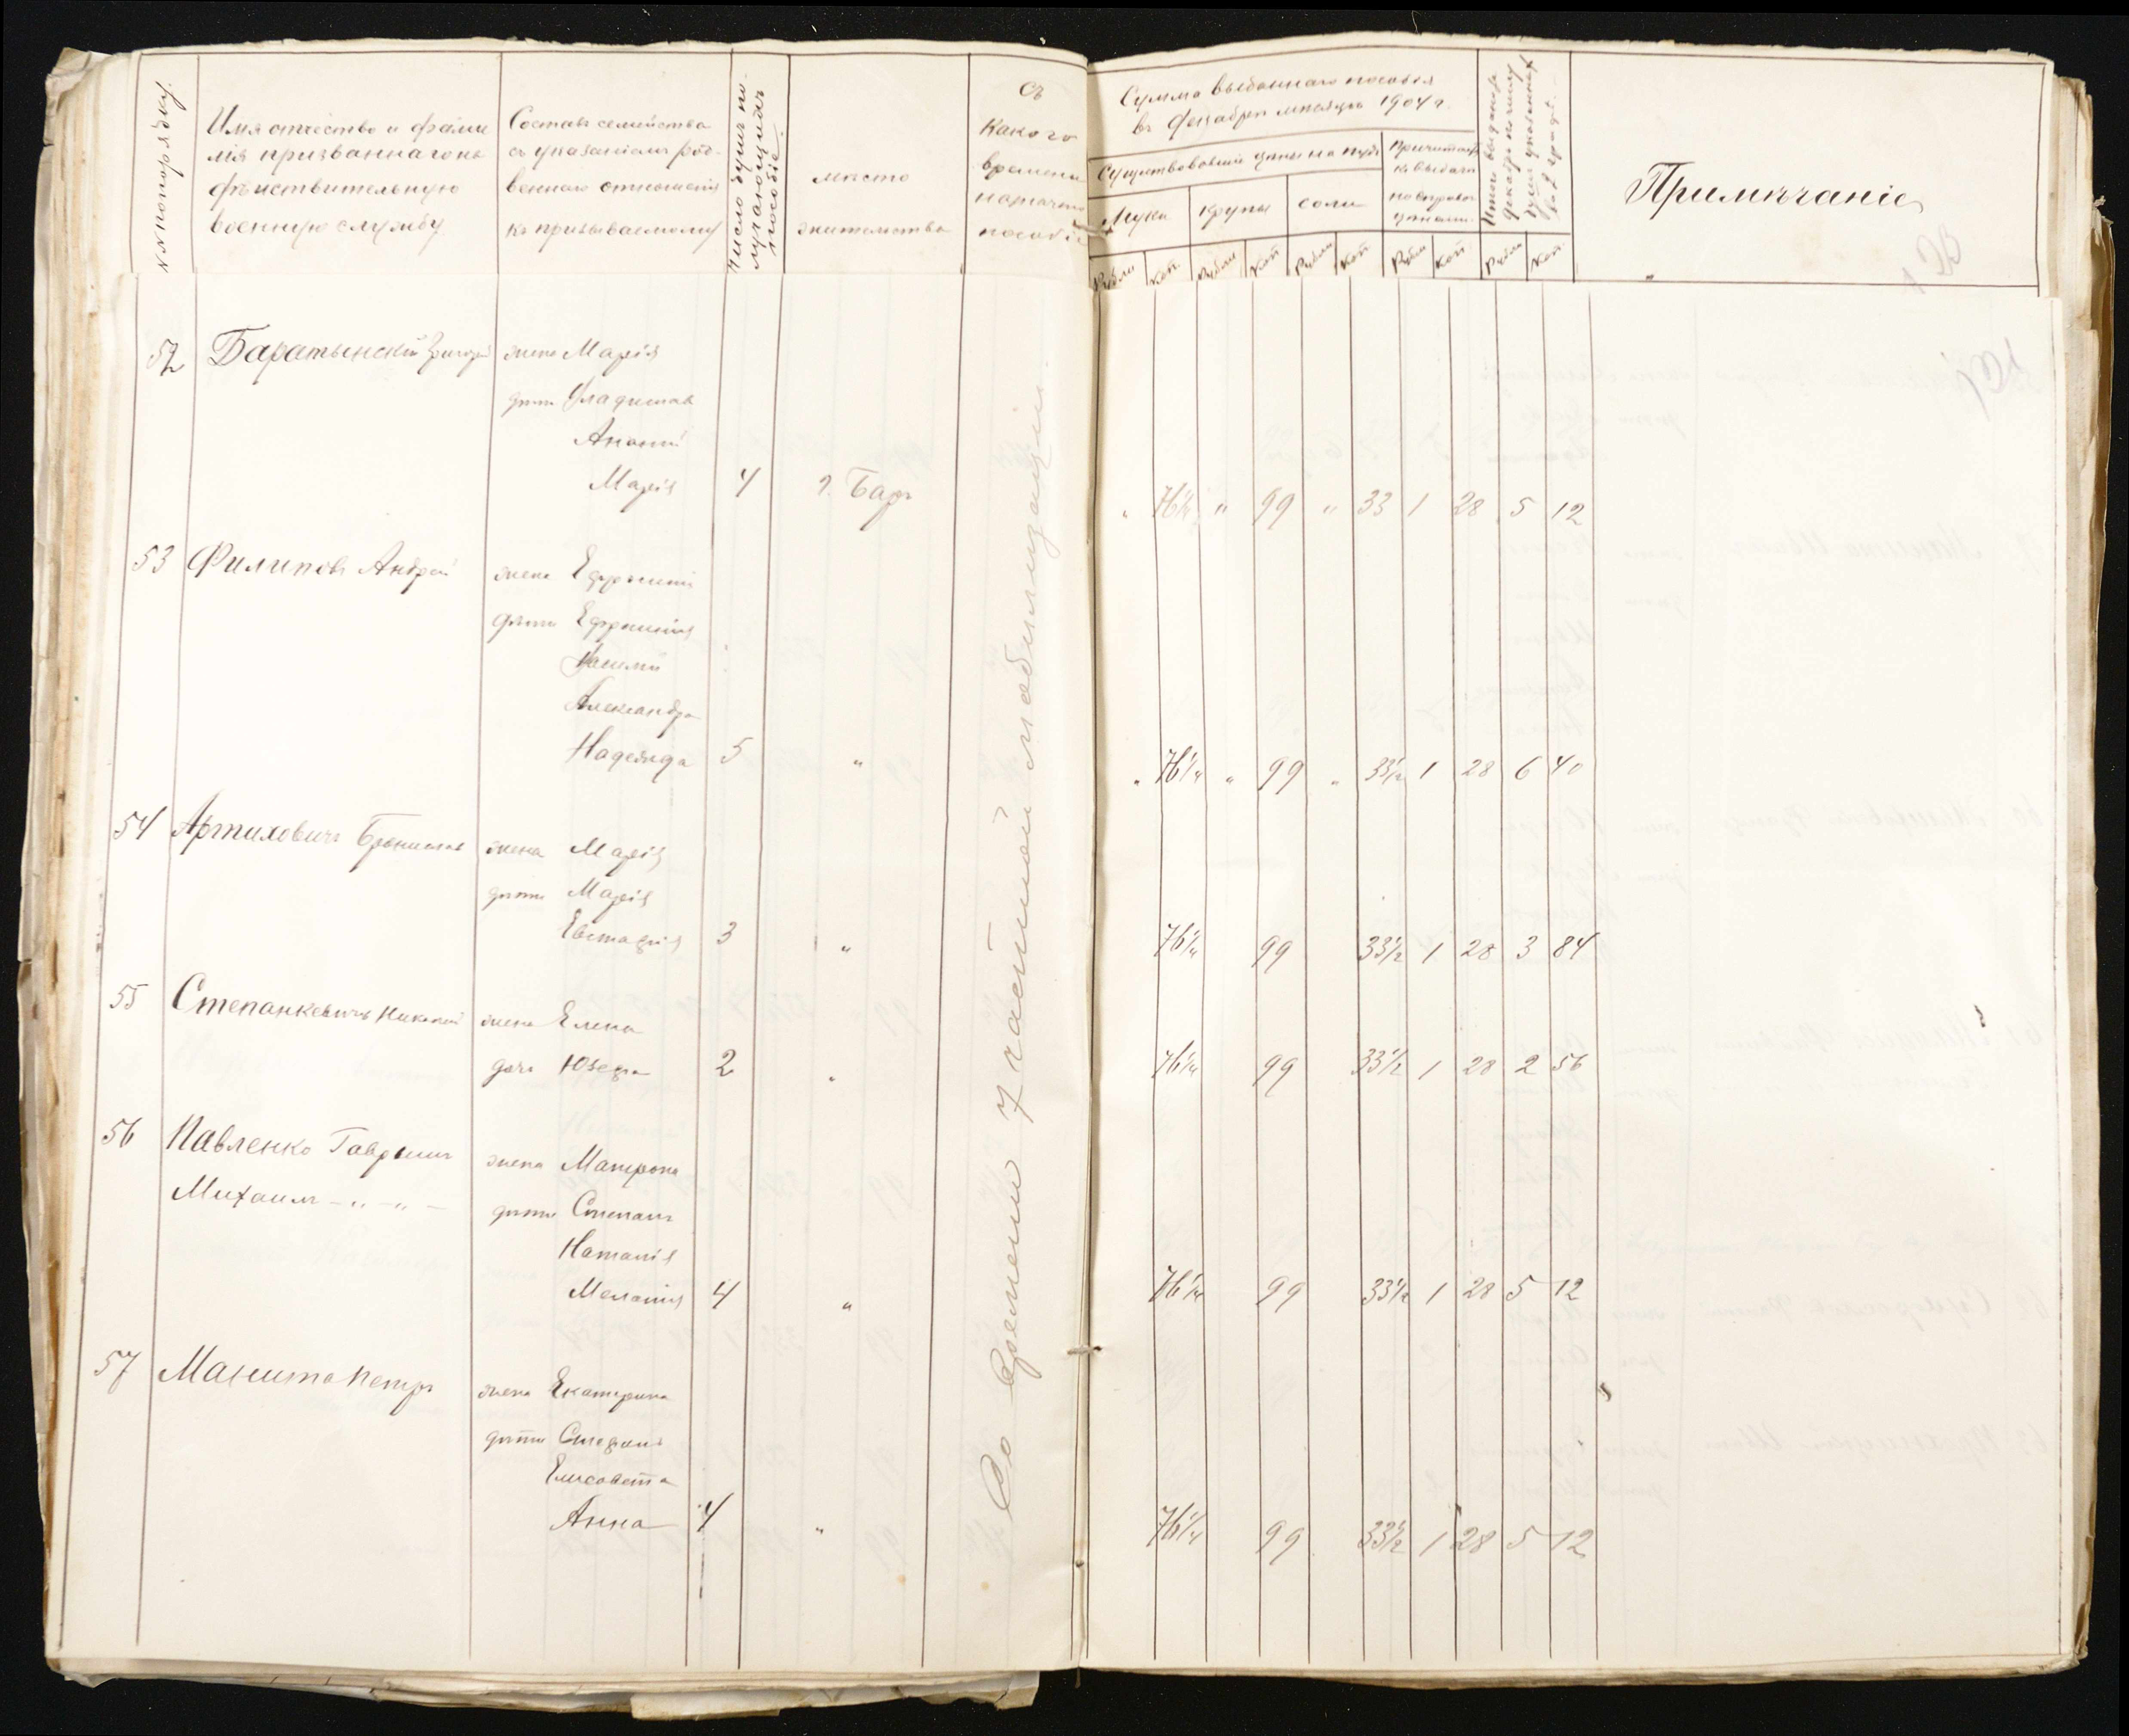 №№ по порядку.
Имя отчество и фами
лія призваннаго на
дѣйствительную
военную службу
Составъ семейства
съ указаніемъ род-
веннаго отношенія
къ призываемому
Число душъ по-
лучающихъ
пособіе.
мѣсто
жительства
Съ
какого
времени
назначено
пособіе
Сумма выданнаго пособія
въ Декабрѣ мѣсяцѣ 1904 г.
Существовавшія цѣны на пудъ
Мука
крупы
соли
Причитает
къ выдачи
по справоч
цѣнамъ
Рубли Коп. Рубли Коп Рубли Коп Рубли Коп. Рубли Коп.
Примѣчаніе
Со времени 7 частичной мобилизаціи.
52 Баратынскій Григорій жена Марія
дѣти Владиславъ
Антонъ
Марія 4 г. Баръ " 76¼ " 99 " 33 1 28 5 12
53 Филиповъ Андрей жена Ефросинія
дѣти Ефросинія
Василій
Александра
Надежда 5 " " 76¼ " 99 " 33½ 1 28 6 40
54 Артиховичъ Брониславъ жена Марія
дѣти Марія
3 " 76¼ 99 33½ 1 28 3 84
55 Степанкевичъ Николай жена Елена
дочь Юзефа 2 " 76¼ 99 33½ 1 28 2 56
56 Павленко Гаврилъ жена Матрона
Михаилъ - " - " - дѣти Степанъ
Наталія
Меланія 4 " 76¼ 99 33½ 1 28 5 12
57 Петръ жена Екатерина
дѣти Стефанъ
Елисавета
Анна 4 " 76¼ 99 33½ 1 28 5 12